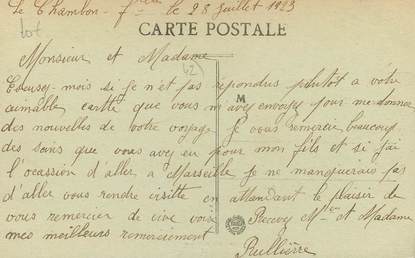 Le Chambon - le 28 Juillet 1923
CARTE POSTALE
Monsieur et Madame
Excusez-mois si je n'et pas répondus plutôt a votre
aimable cartte que vous m'avez envoyez pour me donnez
des nouvelles de votre voyage je vous remercie beaucoup
des soins que vous avez eu pour mon fils et si j'ai
l'ocassion d'aller a Marseille je ne manquerais pas
d'aller vous rendre visitte en attandant le plaisir de
vous remercier de vive voix Recevez Mr et Madame
mes meilleurs remerciement
Rullière